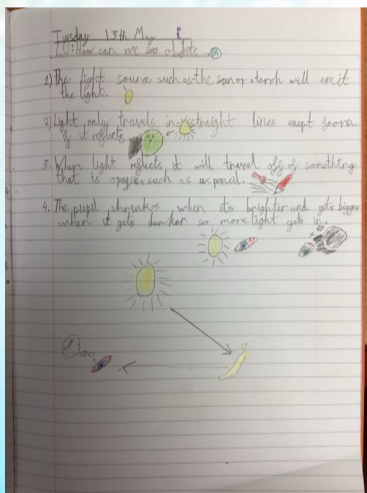 Tuesday 13th May
LO: How can we see objects
1) The light source such as the sun or a torch will emit
the light.
2) Light only travels in straight lines exept
if it reflects
3. When light reflects it will travel off of something
that is opaque such as a pencil.
4. The pupil shrinkes when its brighter and gets bigger
when it gets darker so more light gets in.